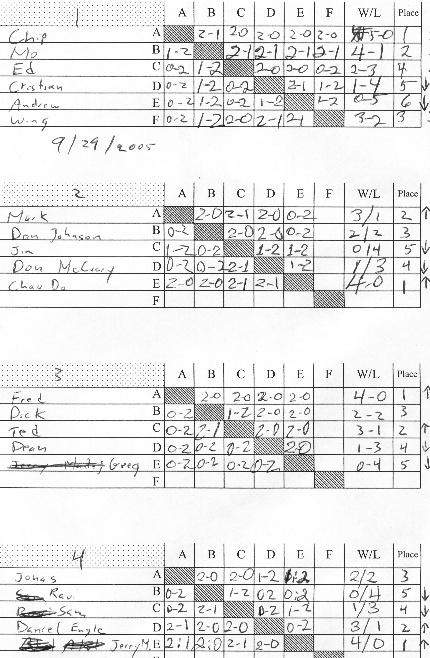 1 A B C D E F W/L Place
Chip A 2-1 2-0 2-0 2-0 2-0 5-0 1
Mo B 1-2 2-1 2-1 2-1 2-1 4-1 2
Ed C 0-2 1-2 2-0 2-0 0-2 2-3 4
Cristian D 0-2 1-2 0-2 2-1 1-2 1-4 5 ↓
Andrew E 0-2 1-2 0-2 1-2 1-2 0-5 6 ↓
Wing F 0-2 1-2 2-0 2-1 2-1 3-2 3
9/29/2005
2 A B C D E F W/L Place
Mark A 2-0 2-1 2-0 0-2 3/1 2 ↑
Don Johnson B 0-2 2-0 2-0 0-2 2/2 3
Jim C 1-2 0-2 1-2 1-2 0/4 5 ↓
Don McCrary D 0-2 0-2 2-1 1-2 1/3 4 ↓
Chau Do E 2-0 2-0 2-1 2-1 4-0 1 ↑
F
3 A B C D E F W/L Place
Fred A 2-0 2-0 2-0 2-0 4-0 1 ↑
Dick B 0-2 1-2 2-0 2-0 2-2 3
Ted C 0-2 2-1 2-0 2-0 3-1 2 ↑
D 0-2 0-2 0-2 2-0 1-3 4 ↓
Greg E 0-2 0-2 0-2 0-2 0-4 5 ↓
F
4 A B C D E F W/L Place
Jonas A 2-0 2-0 1-2 0:2 2/2 3
Rav B 0-2 1-2 0 2 0:2 0/4 5 ↓
Sam C 0-2 2-1 0-2 1-2 1/3 4 ↓
Daniel Engle D 2-1 2-0 2-0 0-2 3/1 2 ↑
Jerry M. E 2:1 2:0 2-1 2-0 4/0 1 ↑